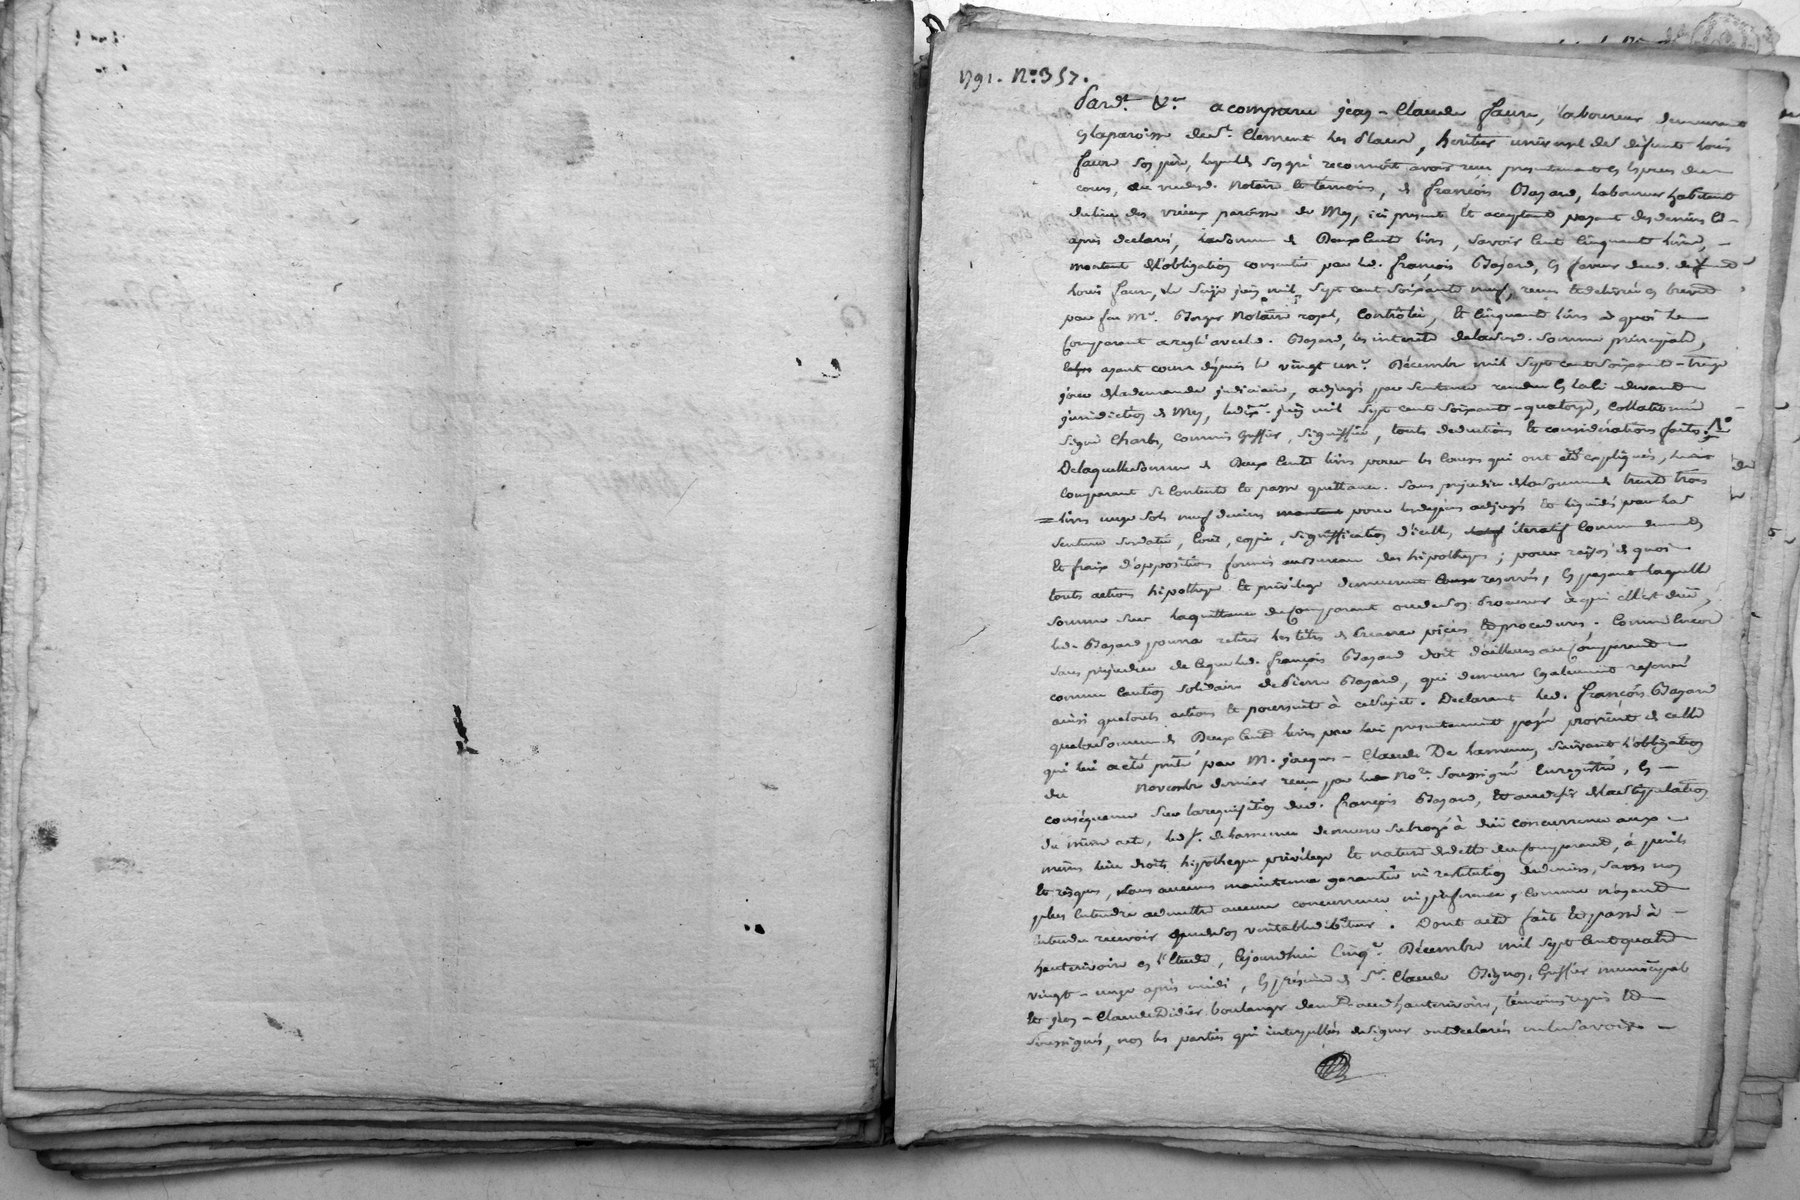 1791. N.º 357.
Pard.t &.a a comparu jean-Claude faure, laboureur demeurant
en la paroisse de St. Clement les places, heritier universel de defunt louis
faure son père, lequel de son gré reconnoit avoir reçu presentement en especes du
cours, au vu desd. Notaire et temoins, de françois Bazard, laboureur habitant
du lieu des vrieux paroisse de Mey, ici present et acceptant payant des deniers ci-
après declarés, la somme de Deux cents livres, savoir Cent Cinquante livres,
montant de l'obligation consentie par led. françois Bazard, en faveur dud. defunt
louis faure, le seize juin mil sept cent soixante neuf, reçue et delivrée en brevet
par feu Me. Notaire royal, Contrôlée, et Cinquante livres à quoi le
Comparant a reglé avec led. Bazard, les interets de lad. somme principale,
ayant couru depuis le vingt un.e Décembre mil sept cent soixante-treize
jour de la demande judiciaire, adjugés par sentence rendue en la ci-devant
juridiction de Mey, le dix.e juin mil sept cent soixante-quatorze, Collationné
signé Charles, commis Greffier, signiffiée, toutes deductions et considerations faites;
De laquelle somme de Deux cents livres pour les causes qui ont été expliquées, led.
comparant se Contente et passe quittance. sans prejudice de la somme de trente trois
livres onze sols neuf deniers pour les depens adjugés et liquidés par lad.
sentence susdatée, Cout, copie, signiffication d'icelle, iteratif Commandement
et fraix d'opposition formée au bureau des hipotheques; pour raison de quoi
touts actions hipotheque et privilege demeurent reservés, en payant laquelle
somme sur la quittance du Comparant ou de son Procureur à qui elle est due,
led. Bazard pourra retirer les titres de Creance pièces et procedures. Comme Encore
sans prejudice de ce que led. françois Bazard doit d'ailleurs au Comparant
comme Caution solidaire de Pierre Bazard, qui demeure egalement reservé
ainsi que touts actions et poursuite à ce sujet. Declarant led. françois Bazard
que la somme de Deux Cents livres par lui presentement payée provient de celle
qui lui a été prêtée par M. jacques-Claude De suivant l'obligation
du novembre dernier reçue par led. No.re soussigné Enregistrée, en
conséquence sur la requisition dud. françois Bazard, et au desir de la stipulation
du même acte, led. sr. demeure subrogé à due concurrence aux
mêmes lieu droits hipotheque privilege et nature de dette du Comparant, à perils
et risques, sans aucune maintenue garantie ni restitution de deniers, sans non
plus Entendre admettre aucune concurrence ni preference, comme n'ayant
Entendu recevoir que de son veritable debiteur. Dont acte fait et passé à
hauterivoire en l'Etude, Cejourdhui Cinq.e Décembre mil sept Cent quatre
vingt-onze après midi, en présence de Sr. Claude Greffier municipal
et jean-Claude Didier boulanger demt. aud. hauterivoire, témoins requis et
soussignés, non les parties qui interpellées de signer ont declaré ne le savoir